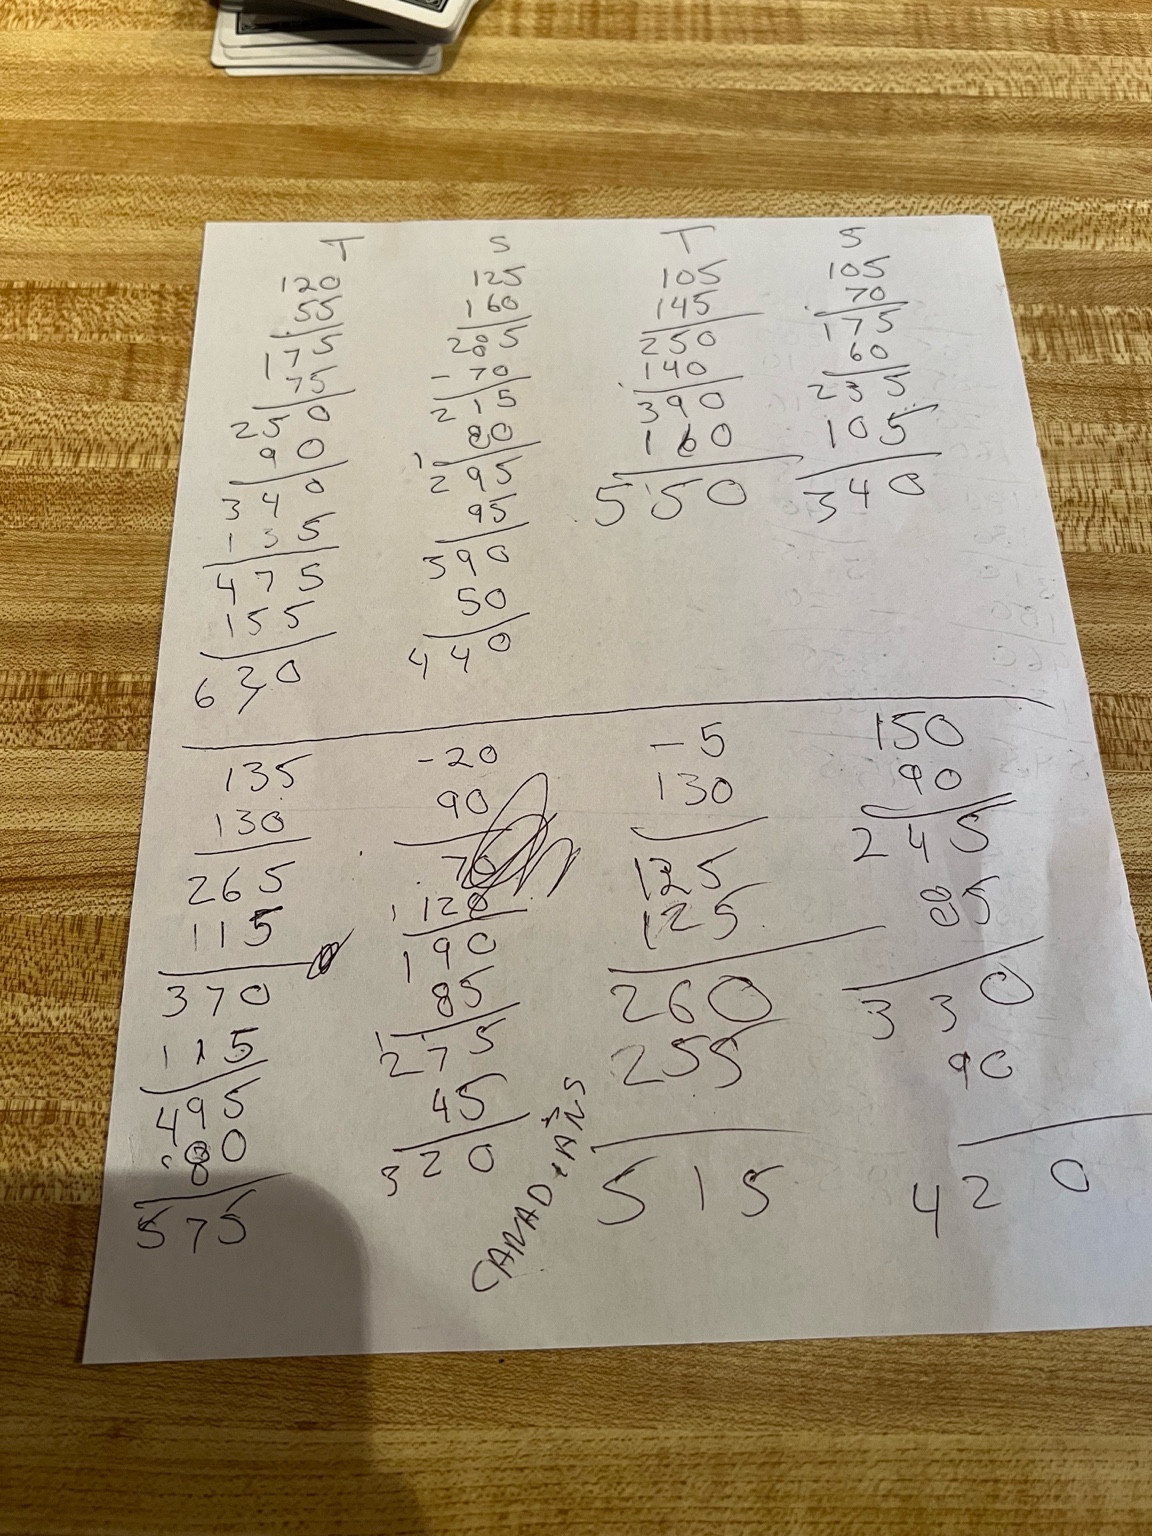 T
120
55
175
75
250
90
340
135
475
155
630
S
125
160
285
-70
215
80
295
95
390
50
440
T
105
145
250
140
390
160
550
S
105
70
175
60
235
105
340
135
130
265
115
370
115
495
80
575
-20
90
70
120
190
85
275
45
320
CANADIANS
-5
130
125
125
260
255
515
150
90
245
85
330
90
420